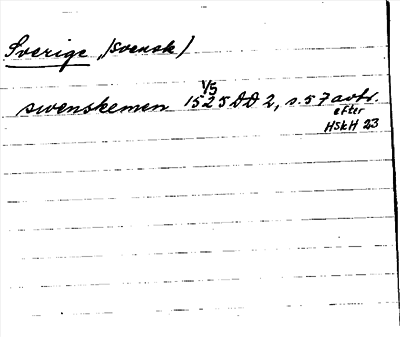 Sverige, /svensk/
1/5
swenskemen 1525 DD 2, s. 57 avtr.
efter
HSkH 23